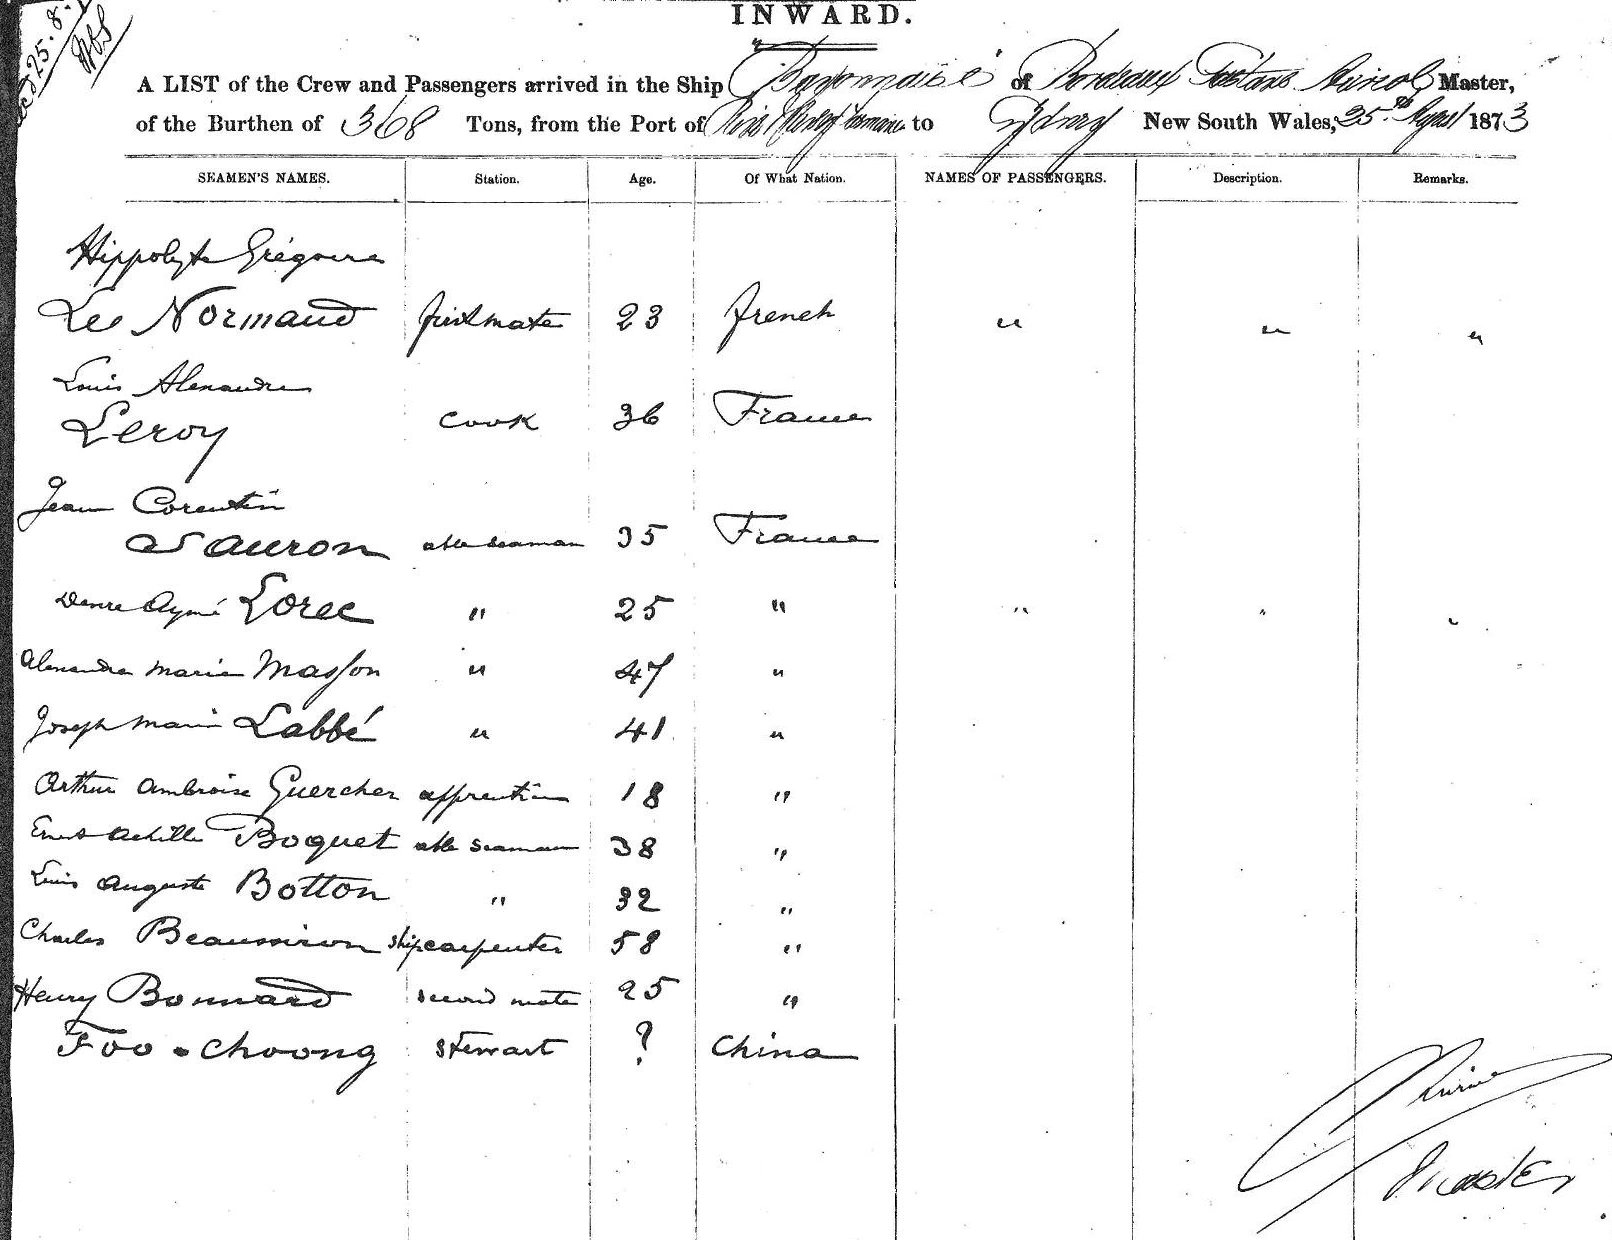 INWARD.
25.8.
A LIST of the Crew and Passengers arrived in the Ship "Bayonnaise" of Bordeaux Master,
of the Burthen of 368 Tons, from the Port of to Sydney New South Wales, 25th 1873
SEAMEN'S NAMES. Station. Age. Of What Nation. NAMES OF PASSENGERS. Description. Remarks.
Hippolyte Grégoire
Le Normand first mate 23 french " " "
Louis Alexandre
Leroy Cook 36 France
Jean Corentin
Sauron able seaman 35 France
Aymé Lorec " 25 " " " "
Alexandre Marie Masson " 47 "
Joseph Marie Labbé " 41 "
Arthur Ambroise Guercher 18 "
Ernest Achille Boquet able seaman 38 "
Louis Auguste Botton " 32 "
Charles ship carpenter 58 "
Henry Bonnard second mate 25 "
Foo-Choong Stewart ? China
Master